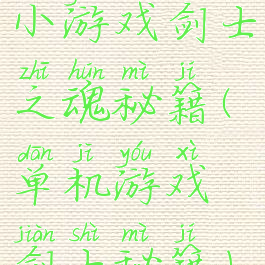 小游戏剑士
zhī hún mì jí
之魂秘籍(
dān jī yóu xì
单机游戏
jiàn shì mì jí
剑士秘籍)